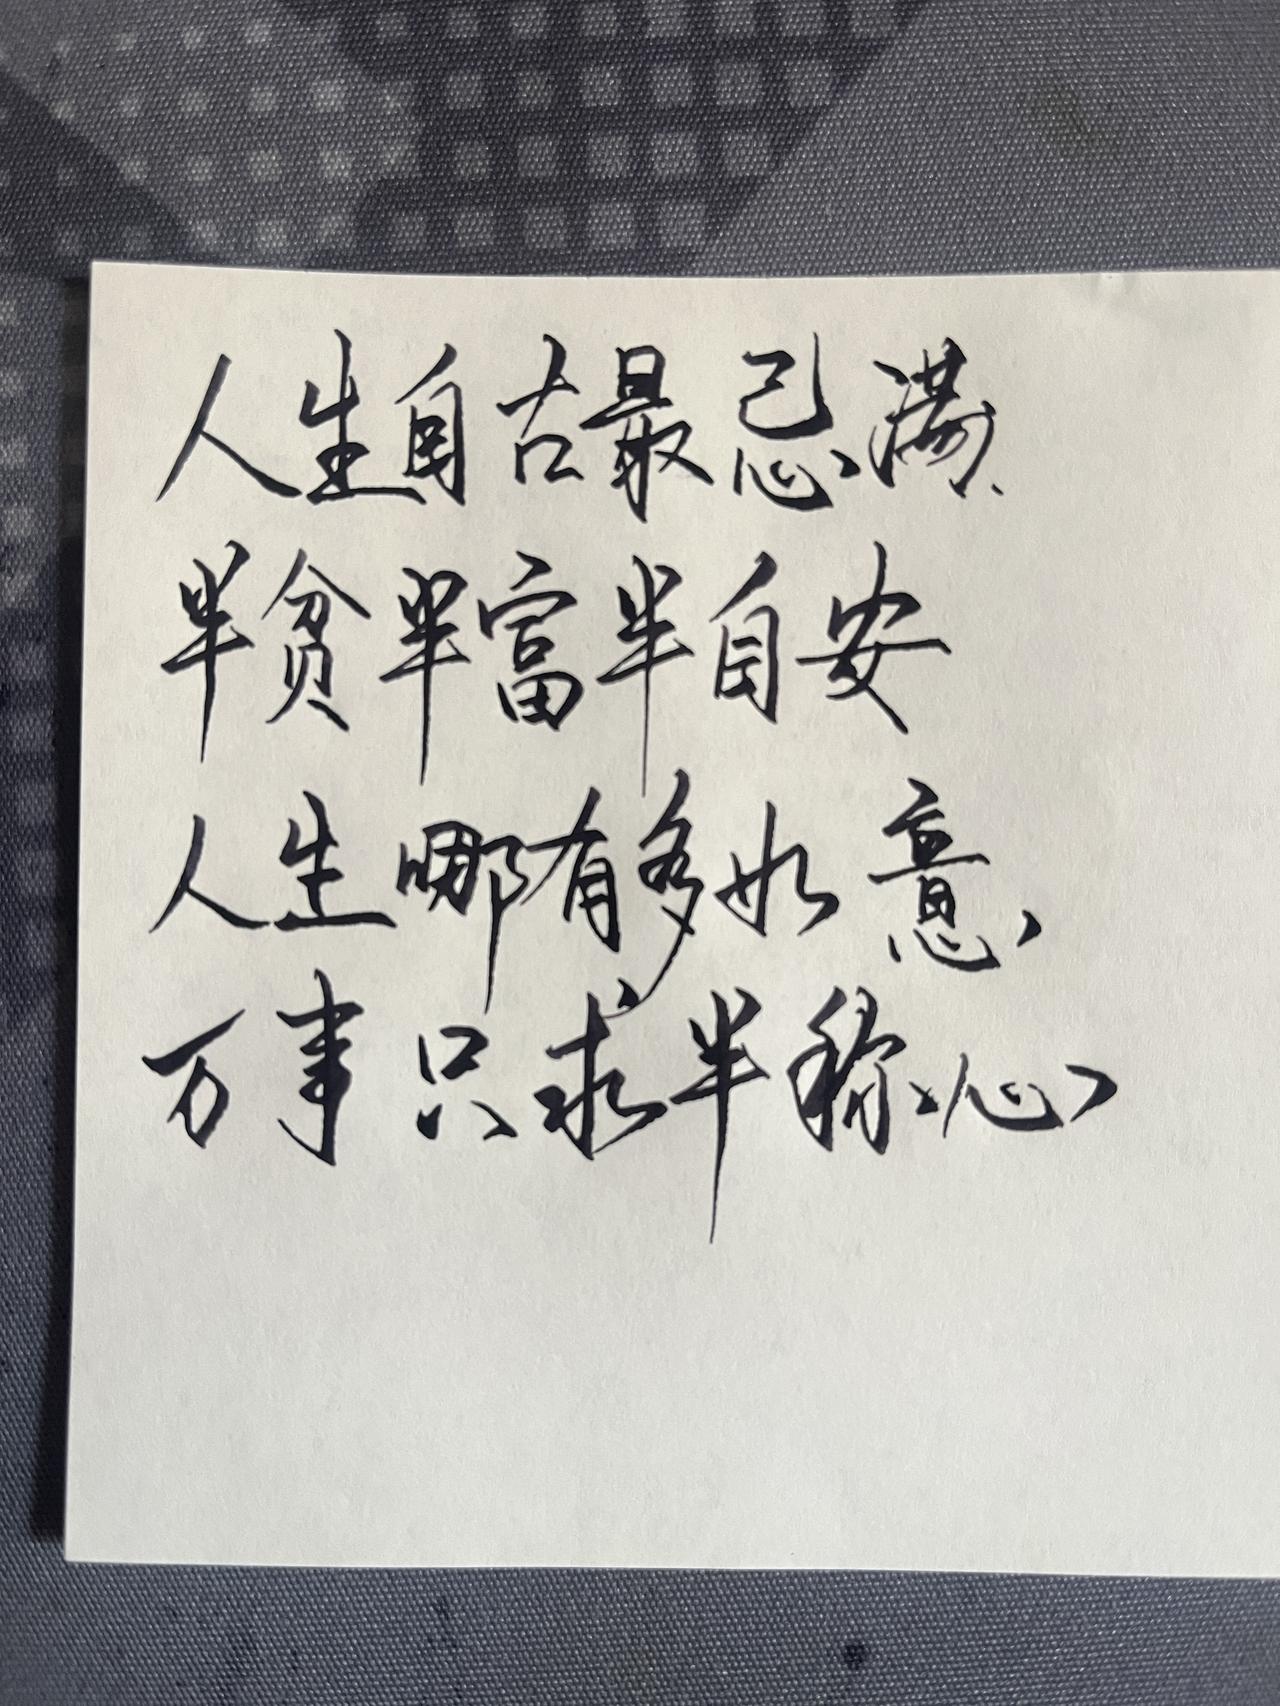 人生自古最忌满
半贫半富半自安
人生哪有多如意
万事只求半称心